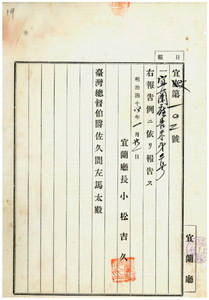 19
日
報
宜 第一〇二號
一宜蘭廳
右報告例ニ依リ報告ス
明治四十四年一月 日
宜蘭廳長 小松吉久
臺灣總督伯爵佐久間左馬太殿
宜蘭廳